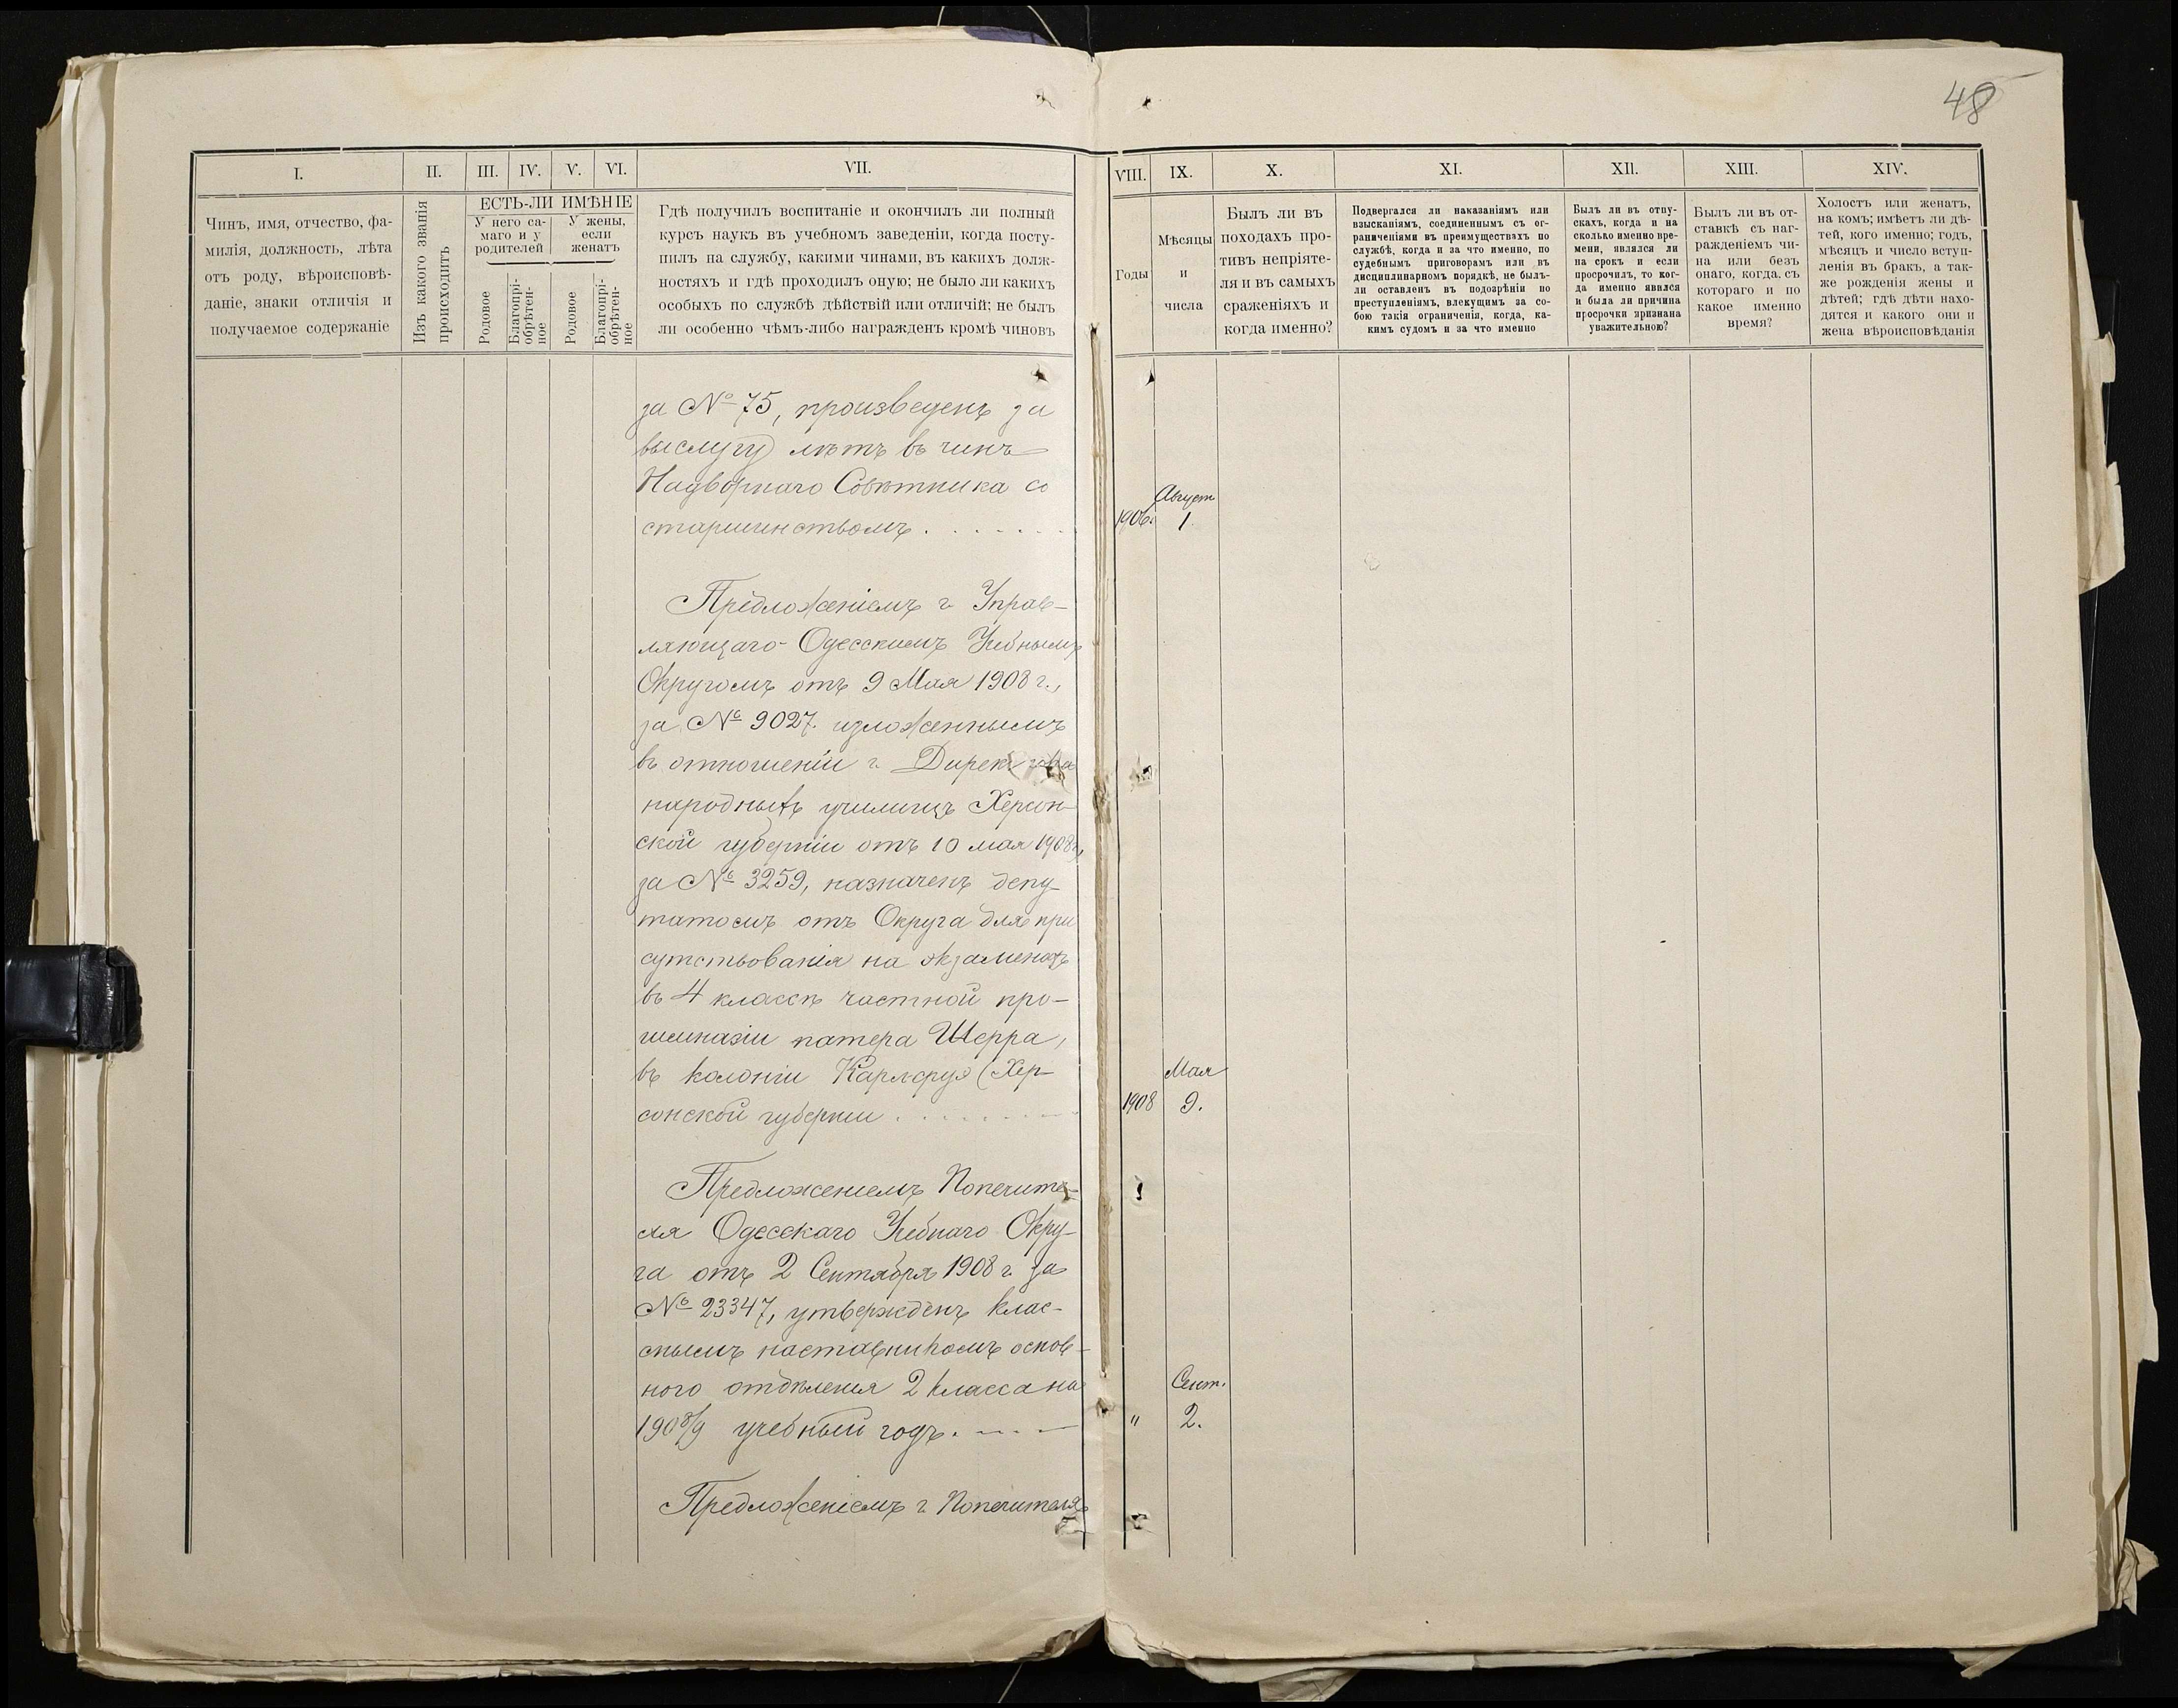 48
I.
II.
III.
IV.
V.
VI.
VII.
VIII.
IX.
X.
XI.
XII.
XIII.
XIV.
Чинъ, имя, отчество, фа-
милія, должность, лѣта
отъ роду, вѣроисповѣ-
даніе, знаки отличія и
получаемое содержаніе
Изъ какого званія
происходитъ
ЕСТЬ-ЛИ ИМѢНІЕ
У него са-
маго и у
родителей
У жены,
если
женатъ
Родовое
Благопрі-
обрѣтен-
ное
Родовое
Благопрі-
обрѣтен-
ное
Гдѣ получилъ воспитаніе и окончилъ ли полный
курсъ наукъ въ учебномъ заведеніи, когда посту-
пилъ на службу, какими чинами, въ какихъ долж-
ностяхъ и гдѣ проходилъ оную; не было ли какихъ
особыхъ по службѣ дѣйствій или отличій; не былъ
ли особенно чѣмъ-либо награжденъ кромѣ чиновъ
Годы
Мѣсяцы
и
числа
Былъ ли въ
походахъ про-
тивъ непріяте-
ля и въ самыхъ
сраженіяхъ и
когда именно?
Подвергался ли наказаніямъ или
взысканіямъ, соединеннымъ съ ог-
раниченіями въ преимуществахъ по
службѣ, когда и за что именно, по
судебнымъ приговорамъ или въ
дисциплинарномъ порядкѣ, не былъ-
ли оставленъ въ подозрѣніи по
преступленіямъ, влекущимъ за со-
бою такія ограниченія, когда, ка-
кимъ судомъ и за что именно
Былъ ли въ отпу-
скахъ, когда и на
сколько именно вре-
мени, явился ли
на срокъ и если
просрочилъ, то ког-
да именно явился
и была ли причина
просрочки признана
уважительною?
Былъ ли въ от-
ставкѣ съ наг-
ражденіемъ чи-
на или безъ
онаго, когда, съ
котораго и по
какое именно
время?
Холостъ или женатъ,
на комъ; имѣетъ ли дѣ-
тей, кого именно; годъ,
мѣсяцъ и число вступ-
ленія въ бракъ, а так-
же рожденія жены и
дѣтей; гдѣ дѣти нахо-
дятся и какого они и
жена вѣроисповѣданія
за № 75, произведенъ за
выслугу лѣтъ въ чинъ
Надворнаго Совѣтника со
старшинствомъ . . . . . . .
Август
1906. 1.
Предложеніемъ г. Управ-
ляющаго Одесскимъ Учебнымъ
Округомъ отъ 9 Мая 1908 г.,
за № 9027. изложеннымъ
въ отношеніи г. Директора
народныхъ училищъ Херсон-
ской губерніи отъ 10 мая 1908 г.,
за № 3259, назначенъ депу-
татомъ отъ Округа для при
сутствованія на экзаменахъ
въ 4 классѣ частной про-
гимназіи патера Шерра,
въ колоніи Карлсруэ (Хер-
сонской губерніи . . . . . . .
Мая
1908 9.
Предложеніемъ Попечите-
ля Одесскаго Учебнаго Окру-
га отъ 2 Сентября 1908 г. за
№ 23347, утвержденъ клас-
снымъ наставникомъ основ-
ного отдѣленія 2 класса на
1908/9 учебный годъ. — . . —
Сент.
" 2.
Предложеніемъ г. Попечителя